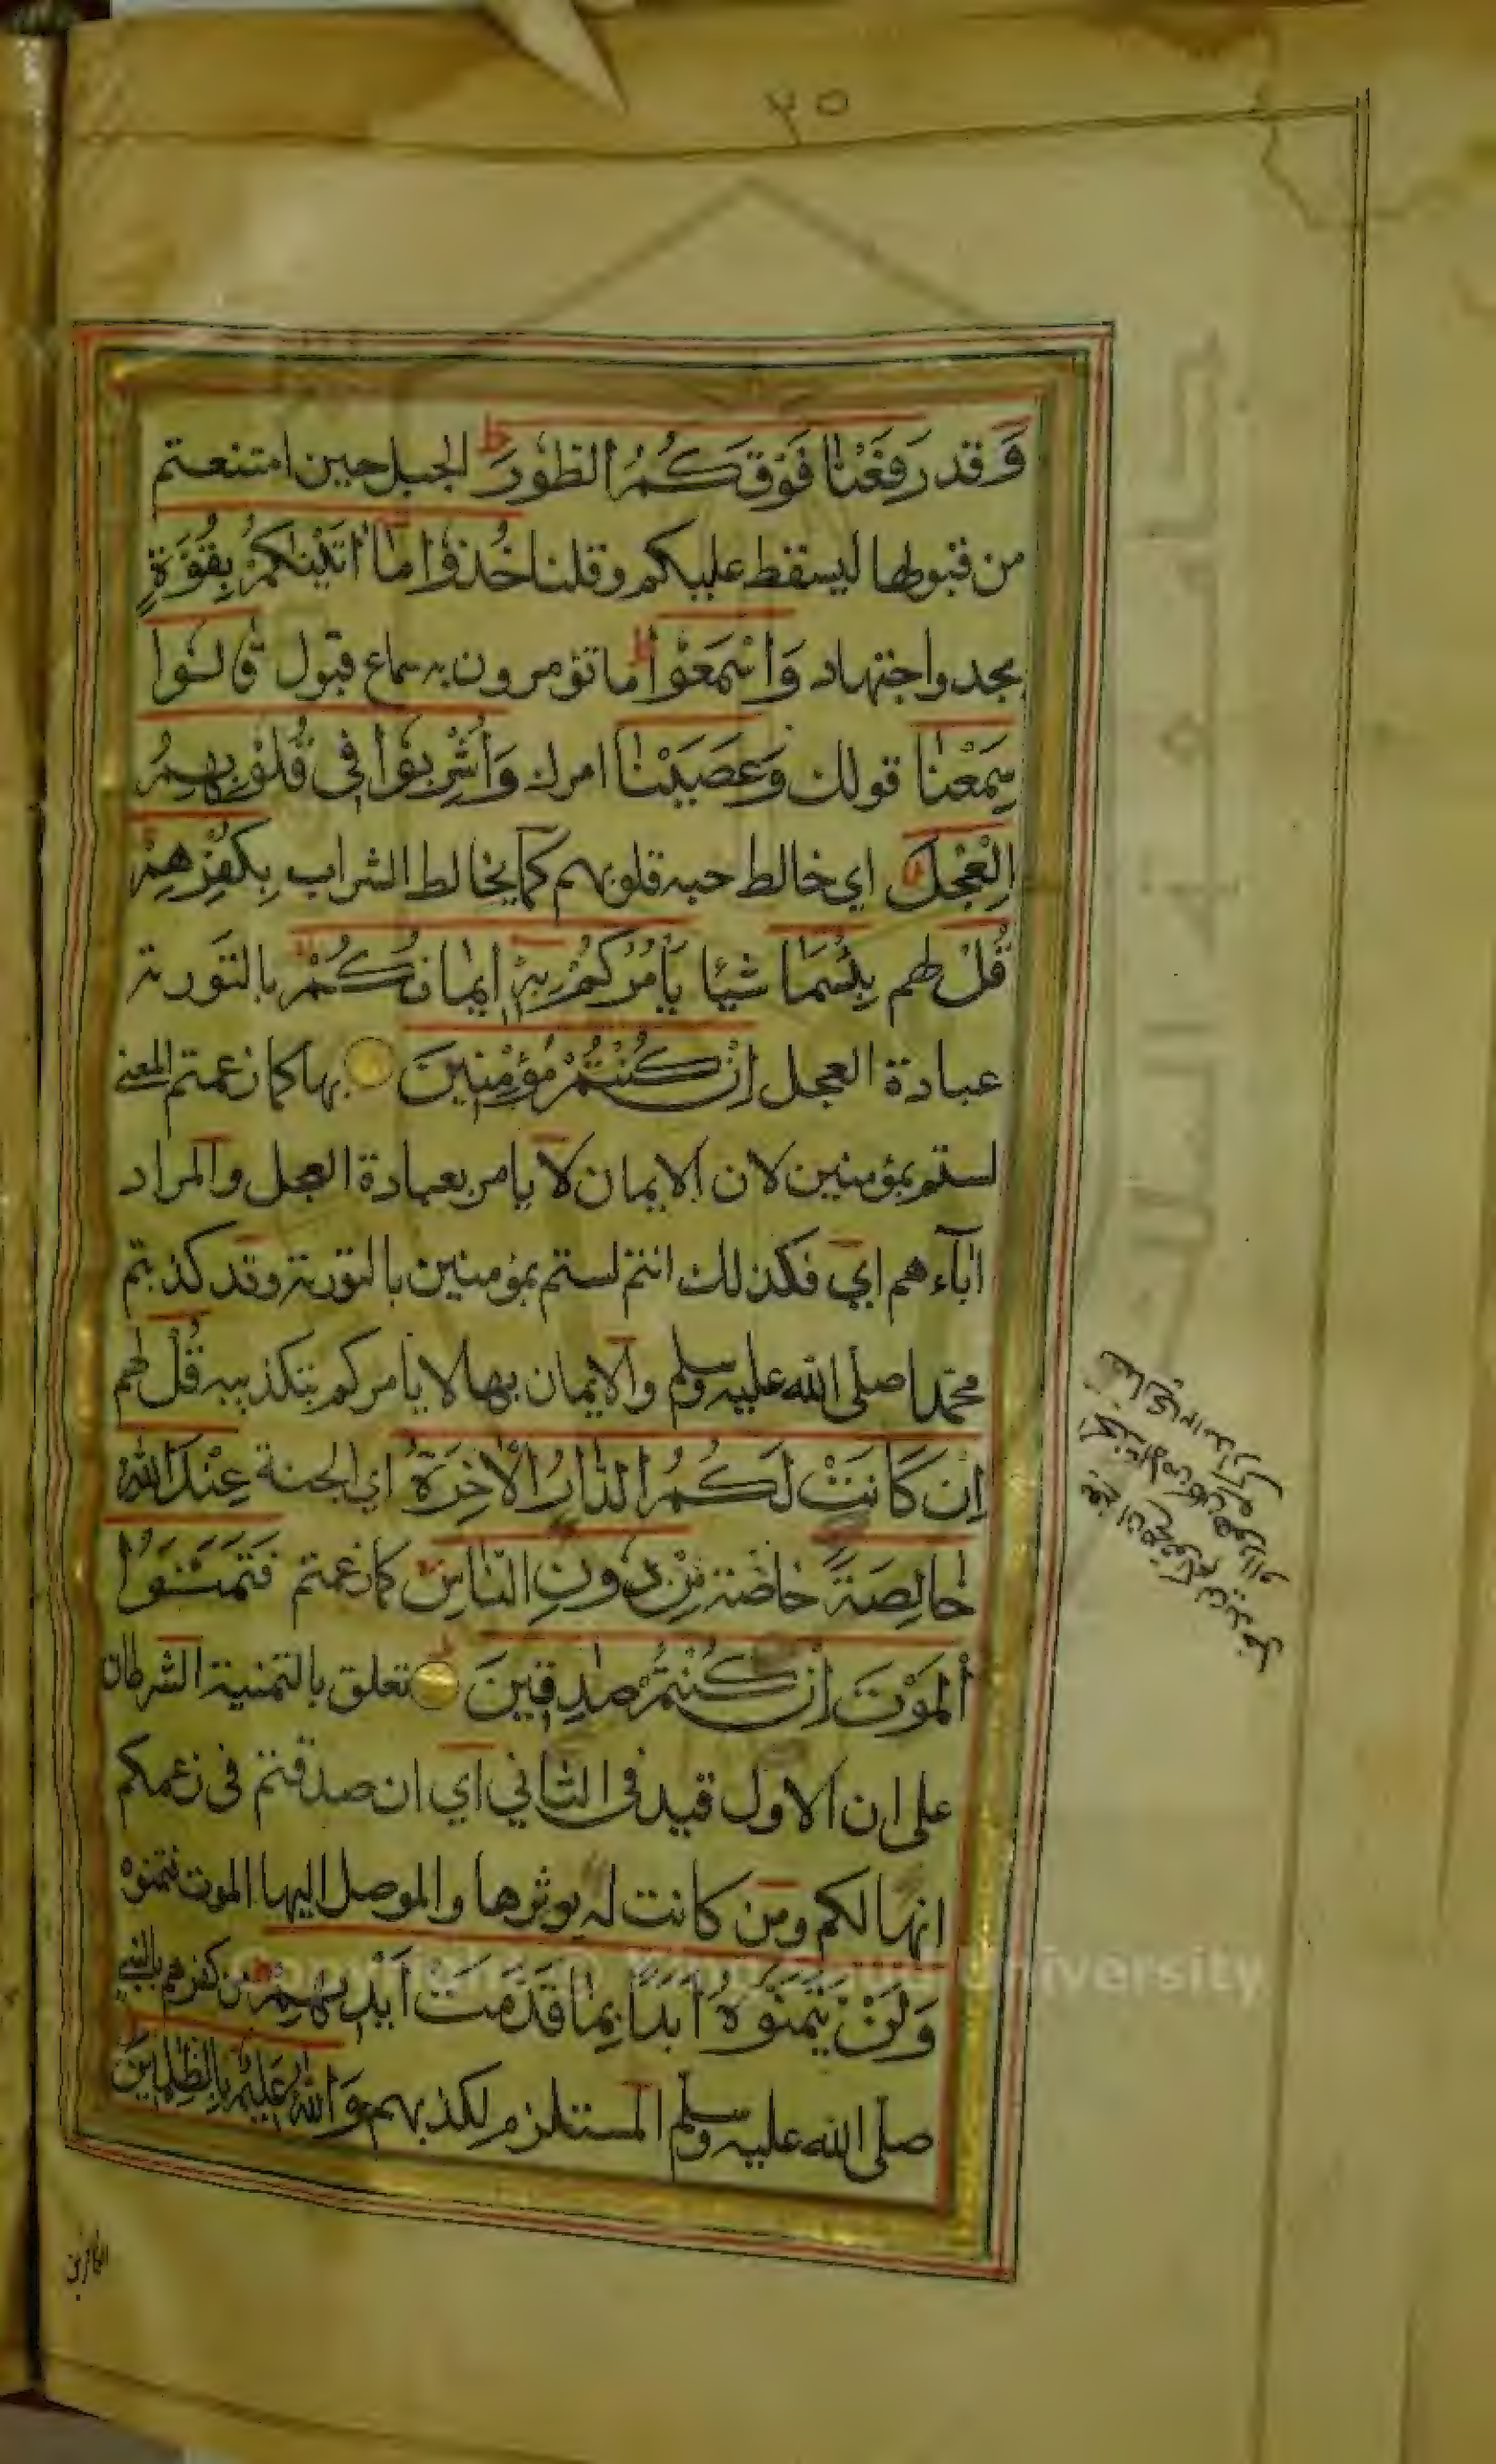 ٢٥
وَقد رَفَعْنَا فَوْقَكُمُ الطُّورَ ط الجبل حين امتنعتم
من قبولها ليسقط عليكم وقلنا خُذُوا مَا اٰتَيْنٰكُمْ بِقُوَّةٍ
بجد واجتهاد وَاسْمَعُوْا ط ما تؤمرون به سماع قبول قَالُوا
سَمِعْنَا قولك وَعَصَيْنَا امرك وَاُشْرِبُوْا فِي قُلُوْبِهِمُ
الْعِجْلَ اي خالط حبه قلوبهم كما يخالط الشراب بِكُفْرِهِمْ
قُلْ لهم بِئْسَمَا شيئا يَاْمُرُكُمْ بِهٖ اِيْمَانُكُمْ بالتورية
عبادة العجل اِنْ كُنْتُمْ مُؤْمِنِيْنَ بها كما زعمتم المعنى
لستم بمؤمنين لان الايمان لا يامر بعبادة العجل والمراد
اٰبآءهم اي فكذلك انتم لستم بمؤمنين بالتورية وقد كذبتم
محمدا صلى الله عليه وسلم والايمان بها لا يامركم بتكذيبه قُلْ لهم
اِنْ كَانَتْ لَكُمُ الدَّارُ الْاٰخِرَةُ اي الجنة عِنْدَ اللّٰهِ
خَالِصَةً خاصة مِنْ دُوْنِ النَّاسِ كما زعمتم فَتَمَنَّوُا
الْمَوْتَ اِنْ كُنْتُمْ صٰدِقِيْنَ تعلق بالتمنية الشرطان
على ان الاول قيد في الثاني اي ان صدقتم في زعمكم
انها لكم ومن كانت له يوثرها والموصل اليها الموت فتمنوه
وَلَنْ يَتَمَنَّوْهُ اَبَدًا بِمَا قَدَّمَتْ اَيْدِيْهِمْ من كفرهم بالنبي
صلى الله عليه وسلم المستلزم لكذبهم وَاللّٰهُ عَلِيْمٌ بِالظّٰلِمِيْنَ
الكافرين